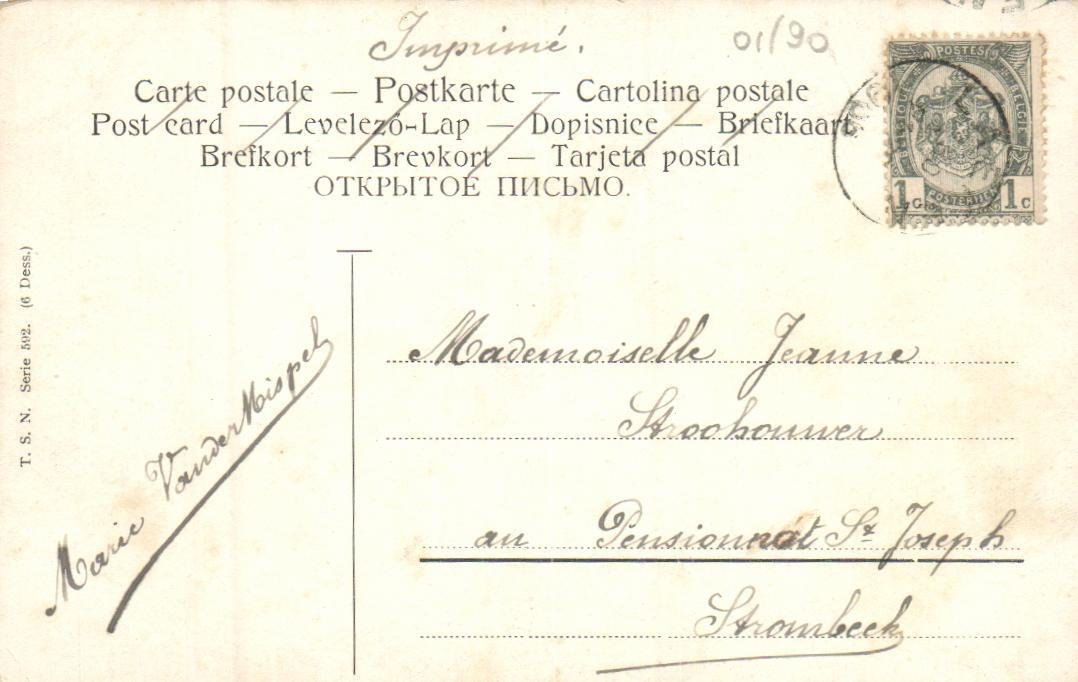 Imprimé.
01/90
Carte postale — Postkarte — Cartolina postale
Post card — Levelező-Lap — Dopisnice — Briefkaart
Brefkort — Brevkort — Tarjeta postal
ОТКРЫТОЕ ПИСЬМО.
POSTES
BELGIQUE
BELGIË
POSTERIJEN
1c 1c
T. S. N. Serie 592. (6 Dess.)
Marie VanderMispel
Mademoiselle Jeanne
Stroohouwer
au Pensionnat St Joseph
Strombeek